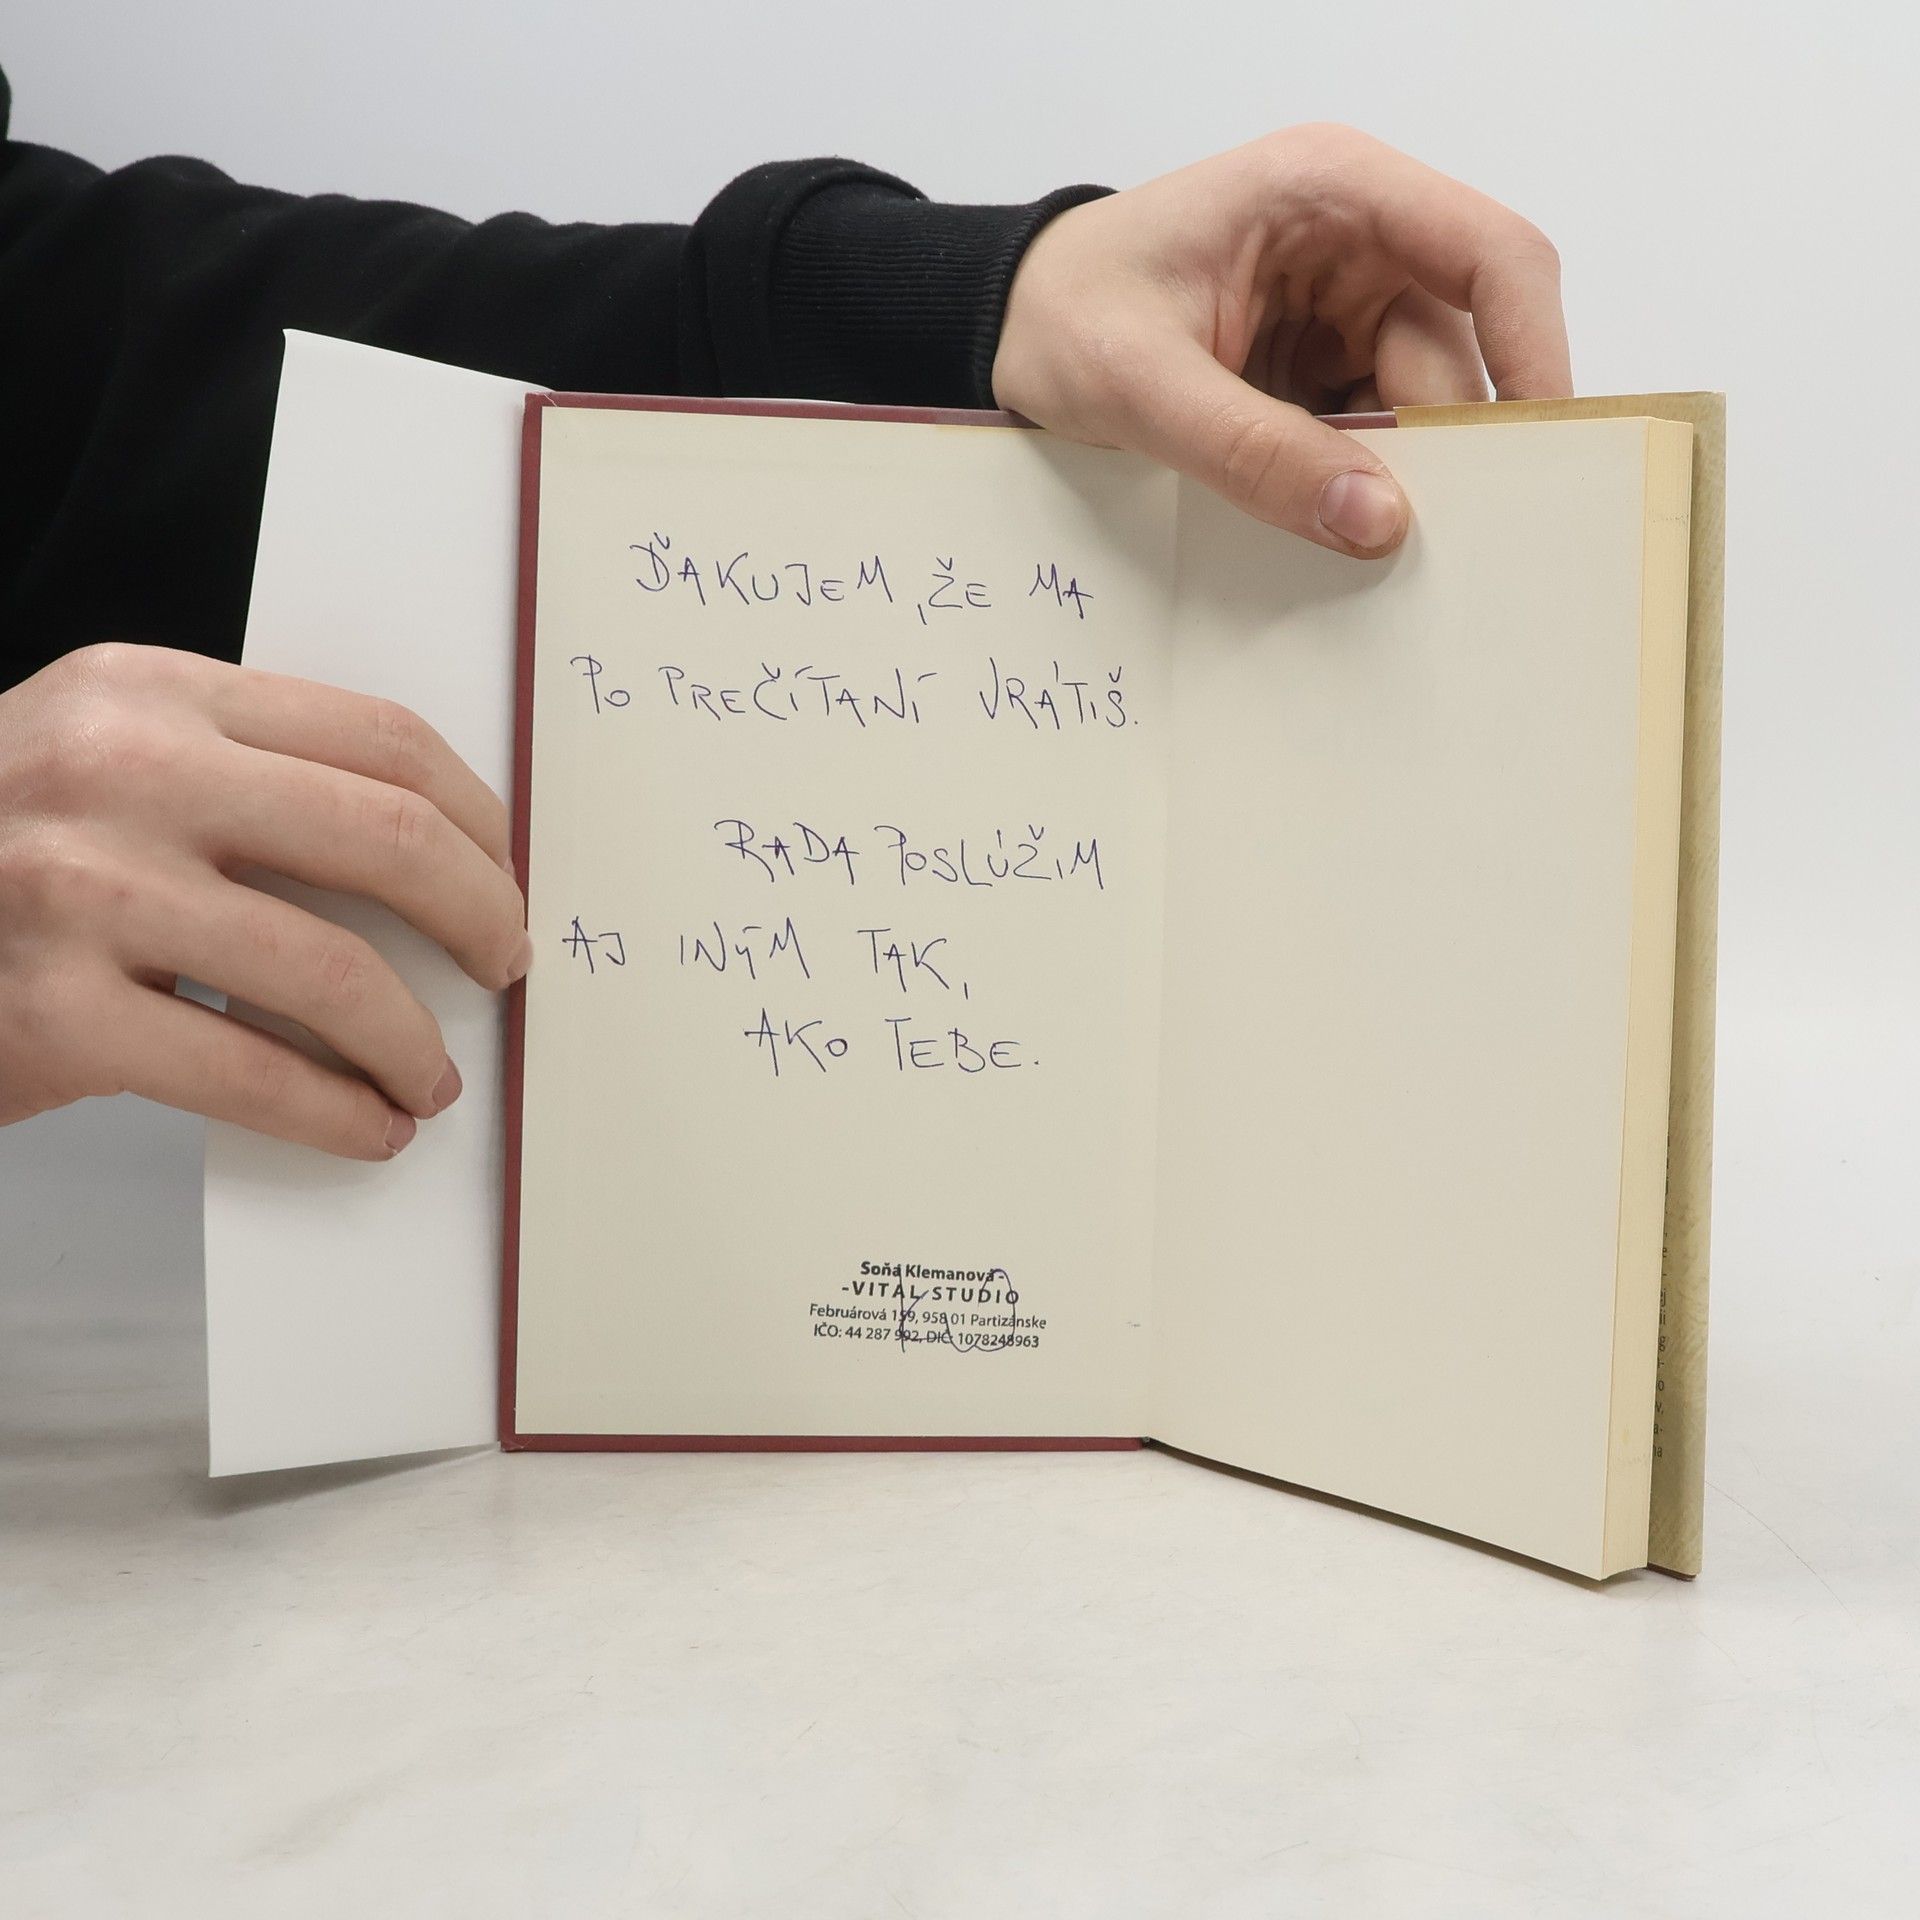 ĎAKUJEM, ŽE MA
PO PREČÍTANÍ VRÁTIŠ.
RADA POSLÚŽIM
AJ INÝM TAK,
AKO TEBE.
Soňa Klemanová -
-VITAL STUDIO
Februárová 159, 958 01 Partizánske
IČO: 44 287 992, DIČ: 1078248963